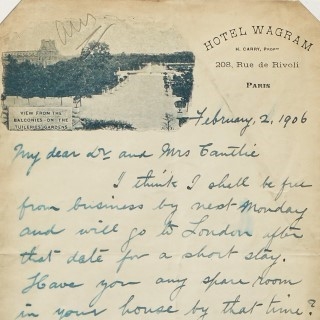 ans
HOTEL WAGRAM
H. CARRY, Propr
208, Rue de Rivoli
PARIS
VIEW FROM THE
BALCONIES-ON-THE
TUILERIES GARDENS
February, 2, 1906
My dear Dr. and Mrs Cantlie
I think I shall be free
from business by next Monday
and will go to London after
that date for a short stay.
Have you any spare room
in your house by that time?